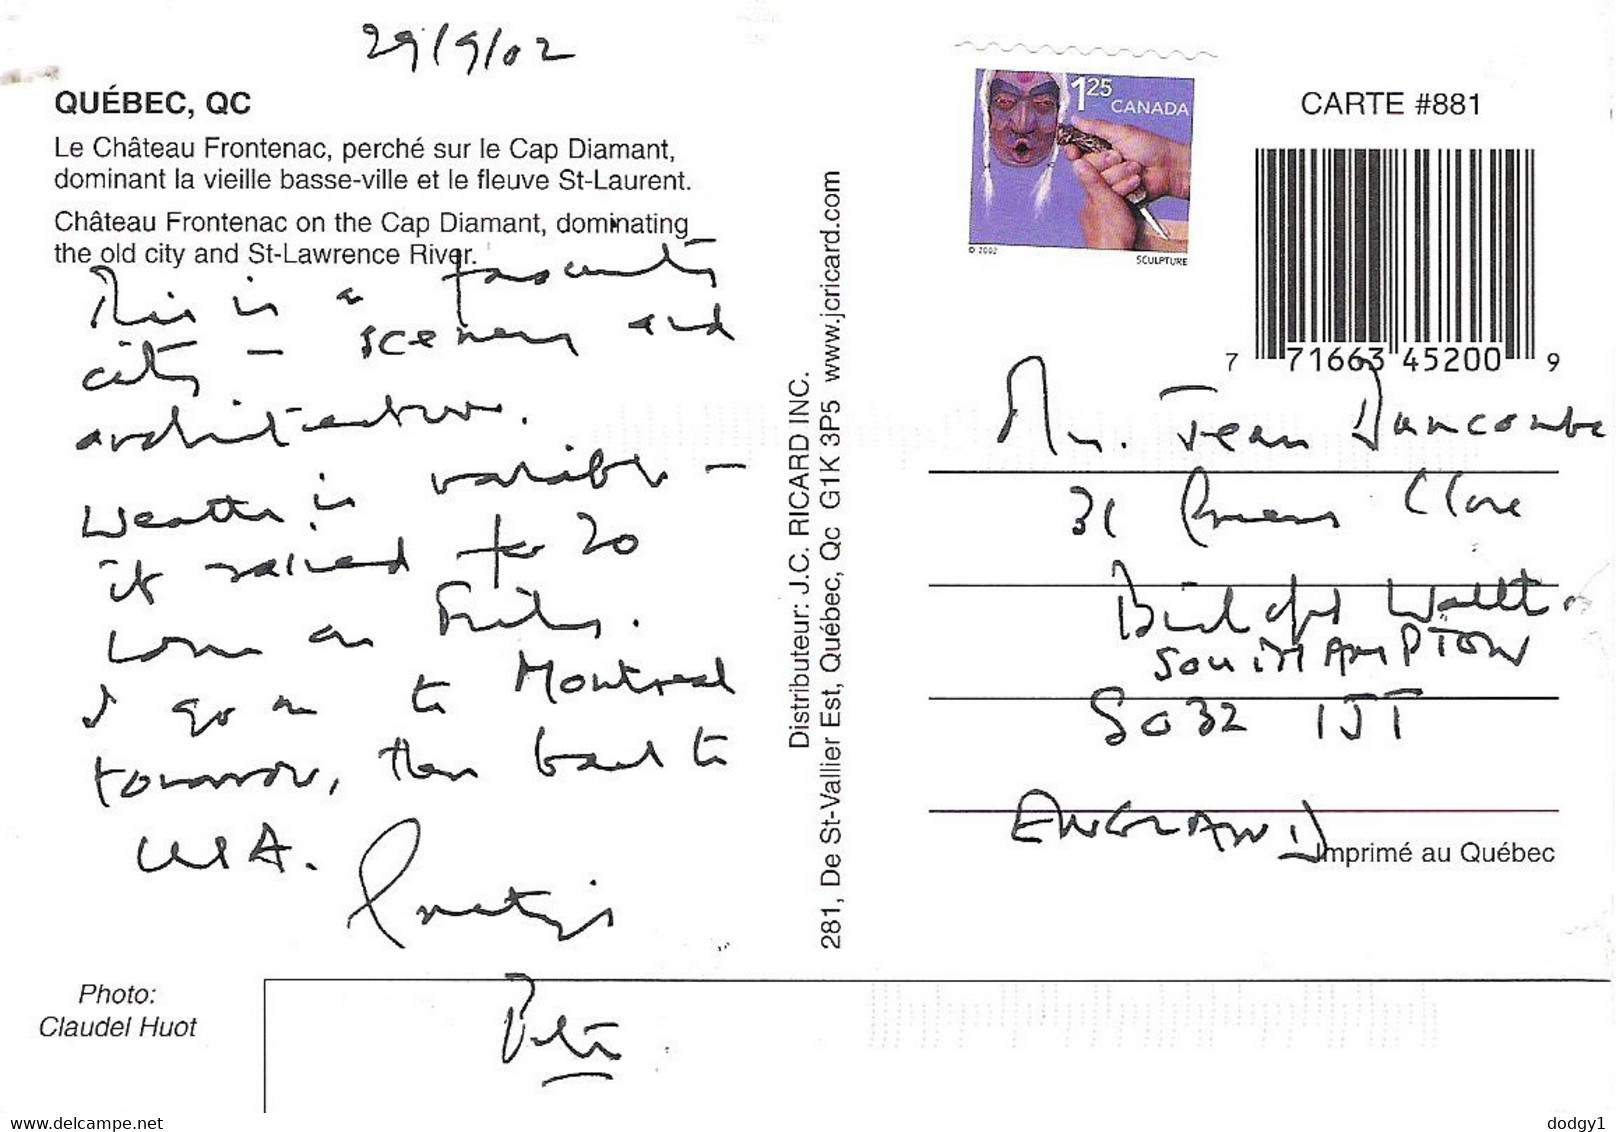 29/9/02
QUÉBEC, QC
Le Château Frontenac, perché sur le Cap Diamant,
dominant la vieille basse-ville et le fleuve St-Laurent.
Château Frontenac on the Cap Diamant, dominating
the old city and St-Lawrence River.
This is a
city - scenery and
architecture.
Weather is variable -
it rained for 20
on Friday.
I go on to Montreal
tomorrow, then back to
USA.
Greetings
Peter
Photo:
Claudel Huot
Distributeur: J.C. RICARD INC.
281, De St-Vallier Est, Québec, Qc G1K 3P5 www.jcricard.com
125
CANADA
© 2002
SCULPTURE
CARTE #881
7 71663 45200 9
Jean Duncombe
31 Close
Bishops Waltham
SOUTHAMPTON
SO32 1JT
ENGLAND
Imprimé au Québec
www.delcampe.net
dodgy1